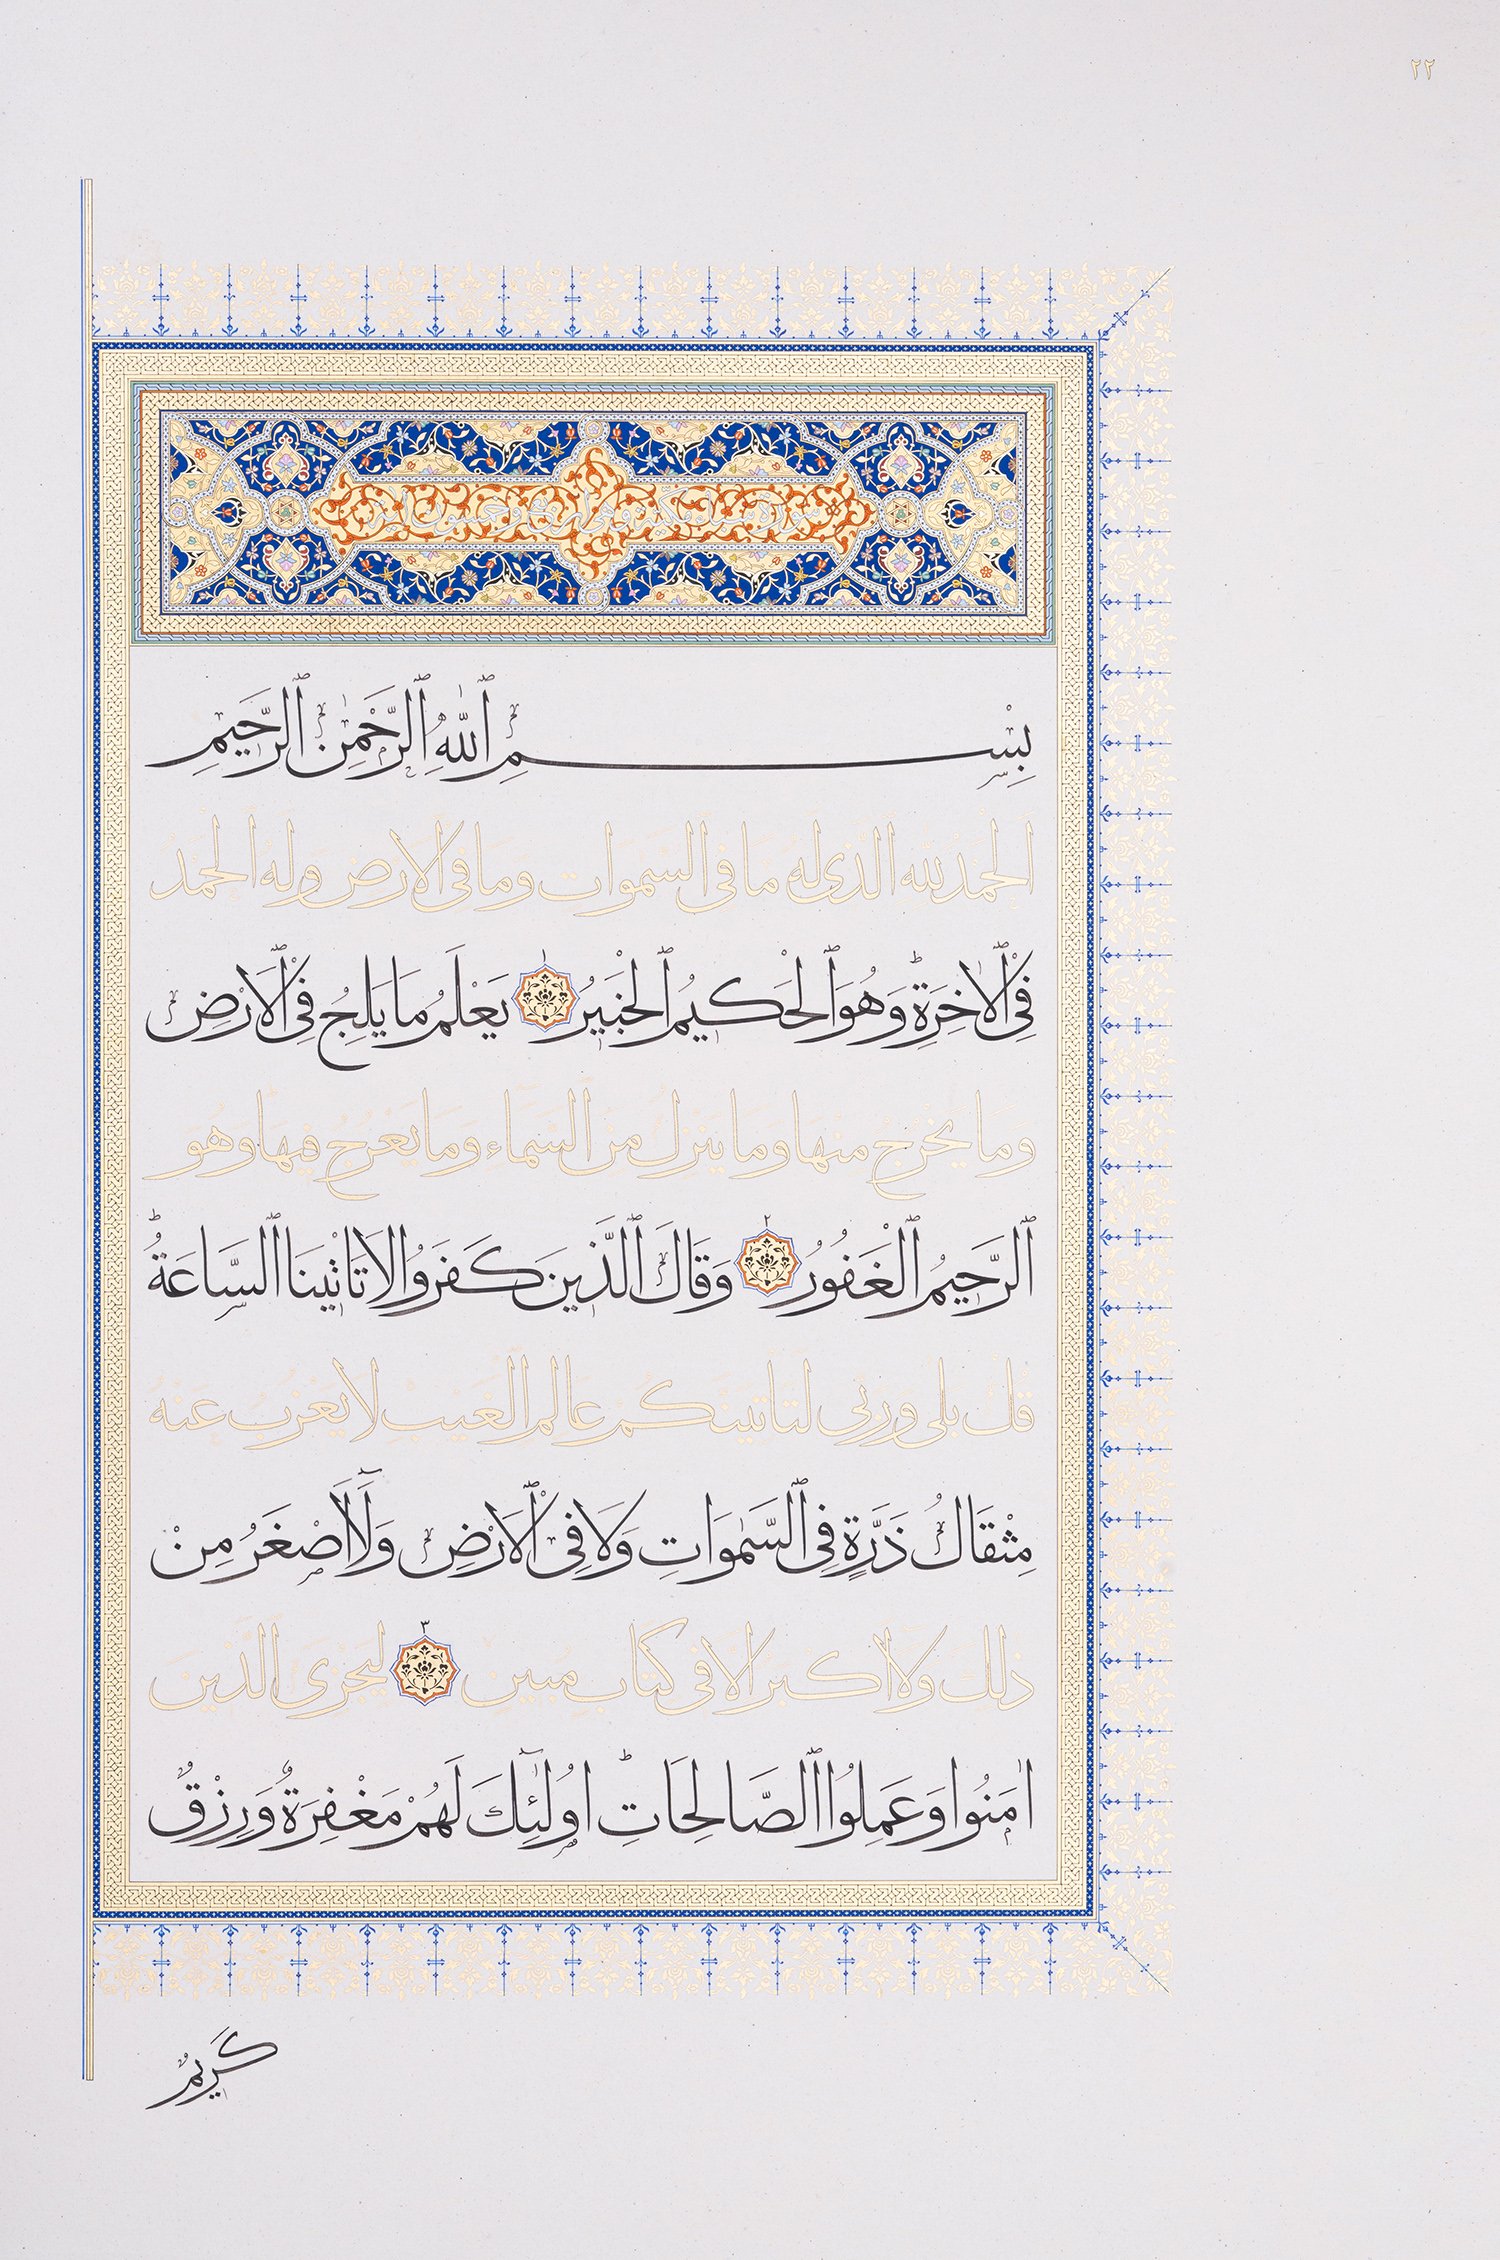 ٢٢
بِسْمِ ٱللّٰهِ ٱلرَّحْمٰنِ ٱلرَّحِيمِ
اَلْحَمْدُ لِلّٰهِ ٱلَّذِى لَهُ مَا فِى ٱلسَّمٰوَاتِ وَمَا فِى ٱلْاَرْضِ وَلَهُ ٱلْحَمْدُ
فِى ٱلْاٰخِرَةِ ؕ وَهُوَ ٱلْحَكِيمُ ٱلْخَبِيرُ ١ يَعْلَمُ مَا يَلِجُ فِى ٱلْاَرْضِ
وَمَا يَخْرُجُ مِنْهَا وَمَا يَنْزِلُ مِنَ ٱلسَّمَٓاءِ وَمَا يَعْرُجُ فِيهَا ؕ وَهُوَ
ٱلرَّحِيمُ ٱلْغَفُورُ ٢ وَقَالَ ٱلَّذِينَ كَفَرُوا لَا تَاْتِينَا ٱلسَّاعَةُ ؕ
قُلْ بَلٰى وَرَبِّى لَتَاْتِيَنَّكُمْ عَالِمِ ٱلْغَيْبِ لَا يَعْزُبُ عَنْهُ
مِثْقَالُ ذَرَّةٍ فِى ٱلسَّمٰوَاتِ وَلَا فِى ٱلْاَرْضِ وَلَٓا اَصْغَرُ مِنْ
ذٰلِكَ وَلَٓا اَكْبَرُ اِلَّا فِى كِتَابٍ مُبِينٍ ٣ لِيَجْزِىَ ٱلَّذِينَ
اٰمَنُوا وَعَمِلُوا ٱلصَّالِحَاتِ ؕ اُو۬لٰٓئِكَ لَهُمْ مَغْفِرَةٌ وَرِزْقٌ
كَرِيمٌ